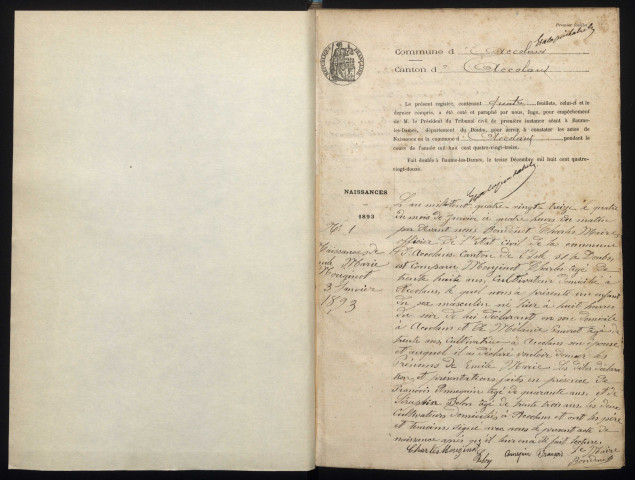 Premier feuillet
Commune d' Accolans
Canton d' Accolans
Le présent registre, contenant quatre feuillets, celui-ci et le
dernier compris, a été coté et paraphé par nous, Juge, pour empêchement
de M. le Président du Tribunal civil de première instance séant à Baume-
les-Dames, département du Doubs, pour servir à constater les actes de
Naissances de la commune d' Accolans pendant le
cours de l'année mil huit cent quatre-vingt-treize.
Fait double à Baume-les-Dames, le treize Décembre mil huit cent quatre-
vingt-douze.
NAISSANCES
1893
N° 1
Naissance de
Marie
Mouginot
3 Janvier
1893
L'an mil huit cent quatre-vingt treize le quatre
du mois de Janvier à quatre heures du matin
par devant nous Charles Maire
officier de l'Etat Civil de la commune
d'Accolans Canton de l'Isle sur le Doubs,
est comparu Mouginot Charles âgé de
trente huit ans, Cultivateur domicilié à
Accolans, lequel nous a présenté un enfant
du sexe masculin né hier à huit heures
du soir de lui déclarant en son domicile
à Accolans et de Mélanie âgée de
trente ans Cultivatrice à Accolans son épouse
et auquel il a déclaré vouloir donner les
Prénoms de Emile Marie. Les dites déclara
tion et présentation faites en présence de
François âgé de quarante ans et de
âgé de trente trois ans les deux
Cultivateurs domiciliés à Accolans et ont les père
et témoins signé avec nous le présent acte de
naissance après qu'il leur en a été fait lecture.
Charles Mouginot François Le Maire